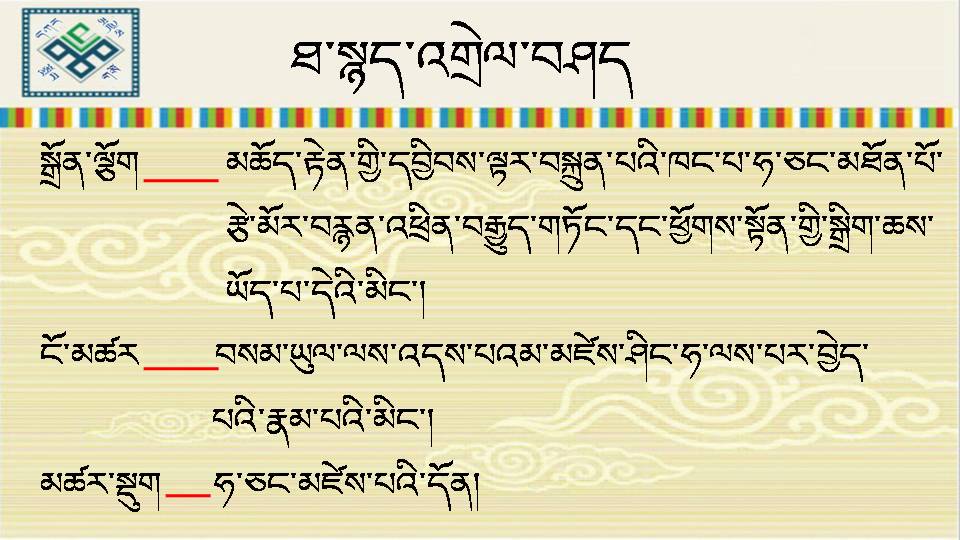 ཐ་སྙད་འགྲེལ་བཤད
སྒྲོན་ལྕོག ____ མཆོད་རྟེན་གྱི་དབྱིབས་ལྟར་བསྐྲུན་པའི་ཁང་པ་ཧ་ཅང་མཐོན་པོ་
རྩེ་མོར་བརྙན་འཕྲིན་བརྒྱུད་གཏོང་དང་ཕྱོགས་སྟོན་གྱི་སྒྲིག་ཆས་
ཡོད་པ་དེའི་མིང་།
ངོ་མཚར ____ བསམ་ཡུལ་ལས་འདས་པའམ་མཛེས་ཤིང་ཧ་ལས་པར་བྱེད་
པའི་རྣམ་པའི་མིང་།
མཚར་སྡུག ___ ཧ་ཅང་མཛེས་པའི་དོན།